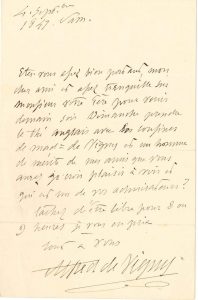 4 Sept
1847. Sam.
Etes vous assez bien portant, mon
cher ami et assez tranquille sur
monsieur votre Père pour venir
demain soir Dimanche prendre
le thé anglais avec les cousines
de mad. de Vigny et un homme
de mérite de mes amis que vous
aurez je crois plaisir à voir et
qui est un de vos admirateurs?
tachez d'être libre pour 8 ou
9 heures je vous en prie
tout à vous
Alfred de Vigny